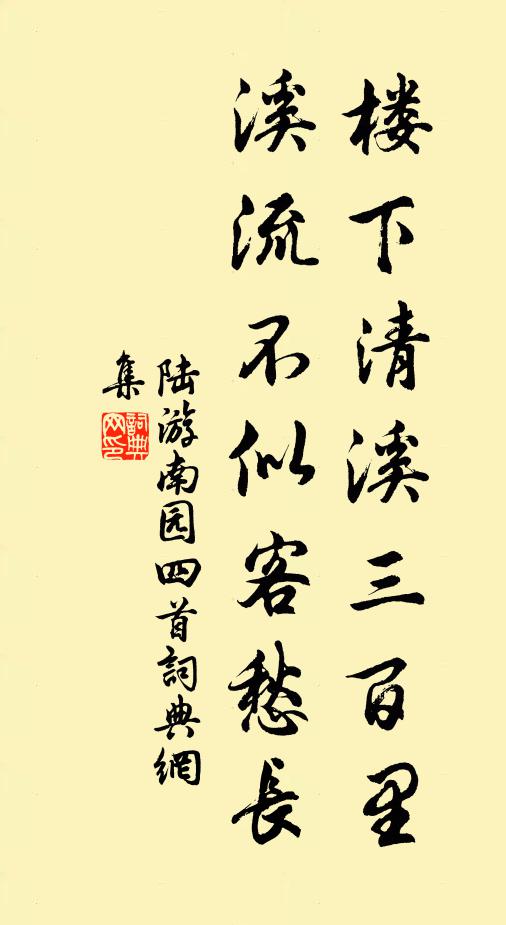 楼下清溪三百里
溪流不似客愁長
陆游南园四首詞典網
集
詞典
网印